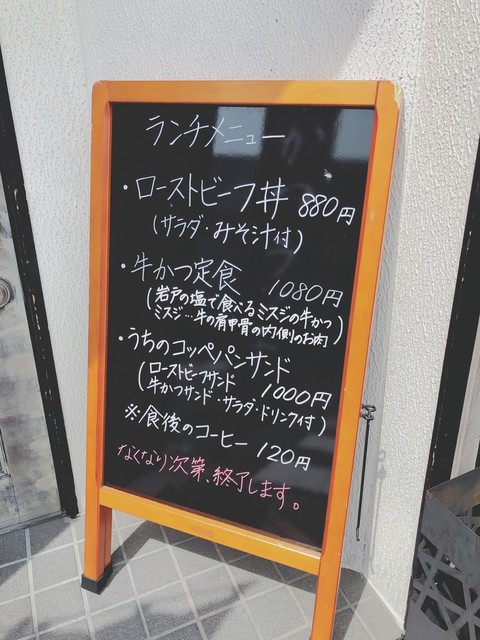 ランチメニュー
・ローストビーフ丼 880円
(サラダ・みそ汁付)
・牛かつ定食 1080円
(岩戸の塩で食べるミスジの牛かつ
ミスジ…牛の肩甲骨の内側のお肉)
・うちのコッペパンサンド
(ローストビーフサンド 1000円
牛かつサンド・サラダ・ドリンク付)
※食後のコーヒー 120円
なくなり次第、終了します。